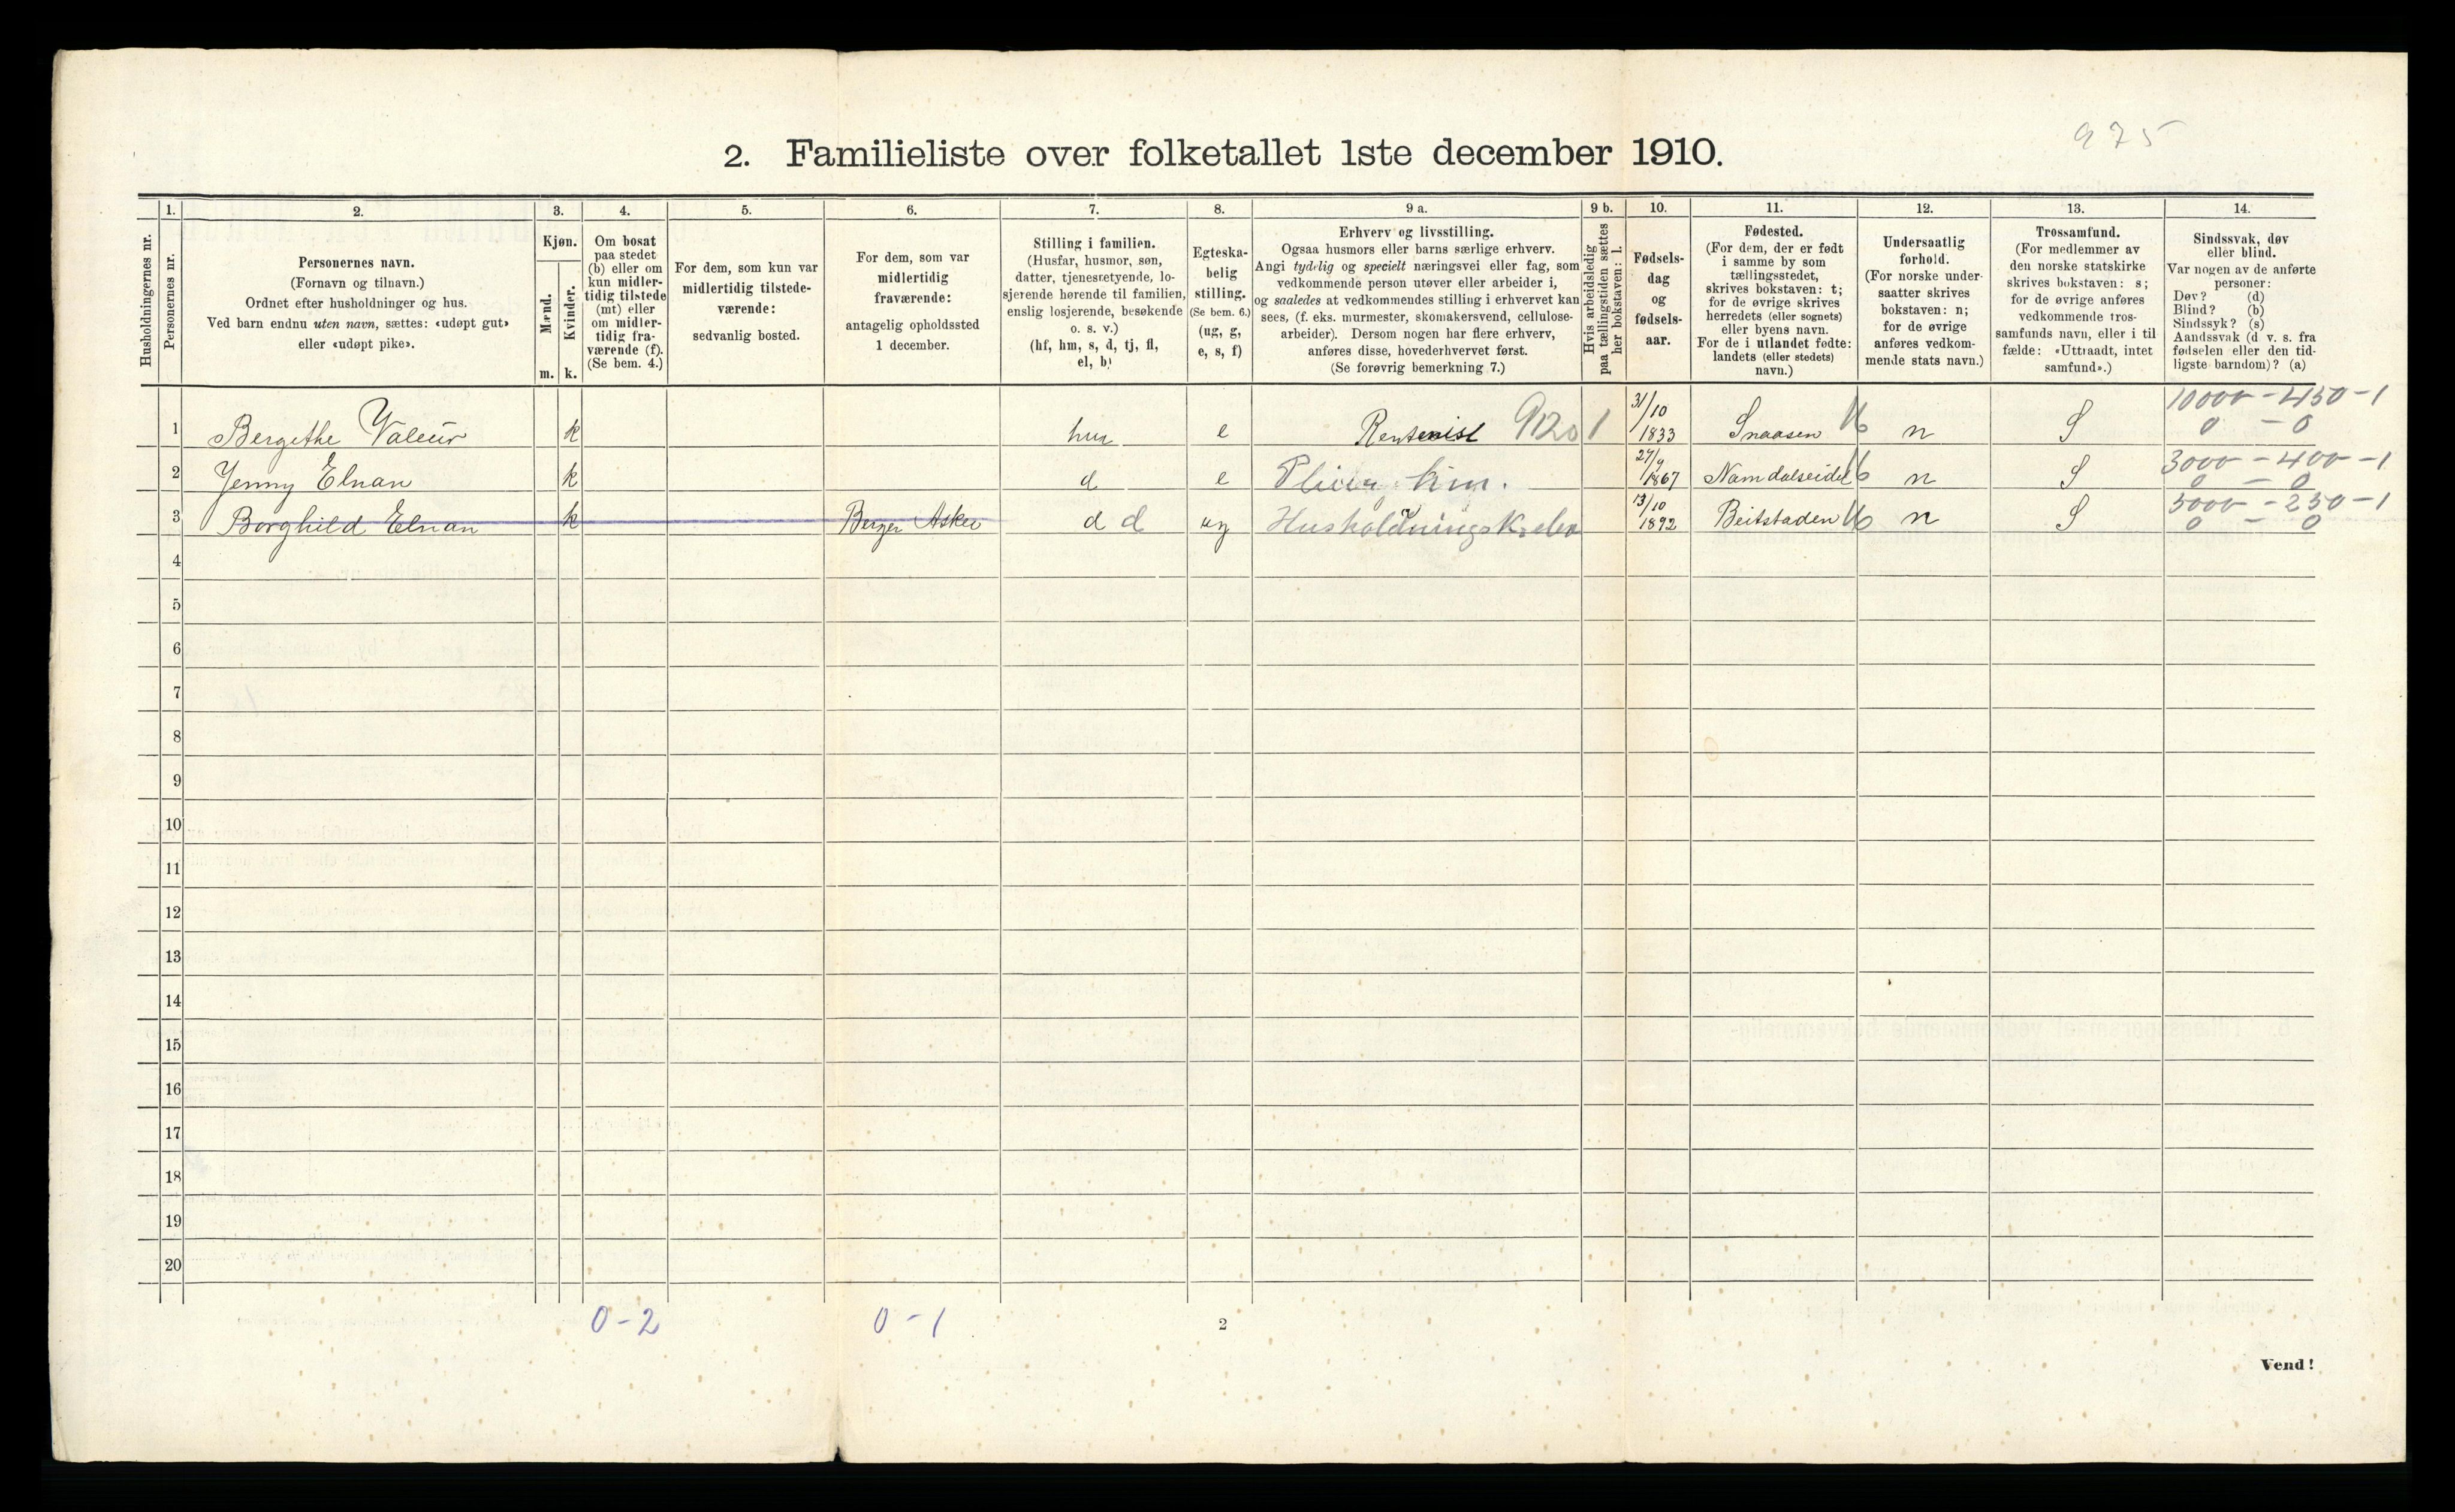 975
2. Familieliste over folketallet 1ste december 1910.
Husholdningernes nr.
1.
Personernes nr.
2.
Personernes navn.
(Fornavn og tilnavn.)
Ordnet efter husholdninger og hus.
Ved barn endnu uten navn, sættes: «udøpt gut»
eller «udøpt pike».
3.
Kjøn.
Mænd.
Kvinder.
m. k.
4.
Om bosat
paa stedet
(b) eller om
kun midler-
tidig tilstede
(mt) eller
om midler-
tidig fra-
værende (f).
(Se bem. 4.)
5.
For dem, som kun var
midlertidig tilstede-
værende:
sedvanlig bosted.
6.
For dem, som var
midlertidig
fraværende:
antagelig opholdssted
1 december.
7.
Stilling i familien.
(Husfar, husmor, søn,
datter, tjenestetyende, lo-
sjerende hørende til familien,
enslig losjerende, besøkende
o. s. v.)
(hf, hm, s, d, tj, fl,
el, b)
8.
Egteska-
belig
stilling.
(Se bem. 6.)
(ug, g,
e, s, f)
9 a.
Erhverv og livsstilling.
Ogsaa husmors eller barns særlige erhverv.
Angi tydelig og specielt næringsvei eller fag, som
vedkommende person utøver eller arbeider i,
og saaledes at vedkommendes stilling i erhvervet kan
sees, (f. eks. murmester, skomakersvend, cellulose-
arbeider). Dersom nogen har flere erhverv,
anføres disse, hovederhvervet først.
(Se forøvrig bemerkning 7.)
9 b.
Hvis arbeidsledig
paa tællingstiden sættes
her bokstaven: l.
10.
Fødsels-
dag
og
fødsels-
aar.
11.
Fødested.
(For dem, der er født
i samme by som
tællingsstedet,
skrives bokstaven: t;
for de øvrige skrives
herredets (eller sognets)
eller byens navn.
For de i utlandet fødte:
landets (eller stedets)
navn.)
12.
Undersaatlig
forhold.
(For norske under-
saatter skrives
bokstaven: n;
for de øvrige
anføres vedkom-
mende stats navn.)
13.
Trossamfund.
(For medlemmer av
den norske statskirke
skrives bokstaven: s;
for de øvrige anføres
vedkommende tros-
samfunds navn, eller i til
fælde: «Uttraadt, intet
samfund».)
14.
Sindssvak, døv
eller blind.
Var nogen av de anførte
personer:
Døv? (d)
Blind? (b)
Sindssyk? (s)
Aandssvak (d. v. s. fra
fødselen eller den tid-
ligste barndom)? (a)
1 Bergethe Valeur k hm e Rentenist 9120 1 31/10 1833 Snaasen 16 n S 10000 - 450 - 1
0 - 0
2 Jenny Elnan k d e 27/9 1867 Namdalseidet 16 n S 3000 - 400 - 1
0 - 0
3 Borghild Elnan k Berger Asker d d ug 13/10 1892 Beitstaden 16 n S 5000 - 250 - 1
0 - 0
4
5
6
7
8
9
10
11
12
13
14
15
16
17
18
19
20
0-2 0-1 2
Vend!